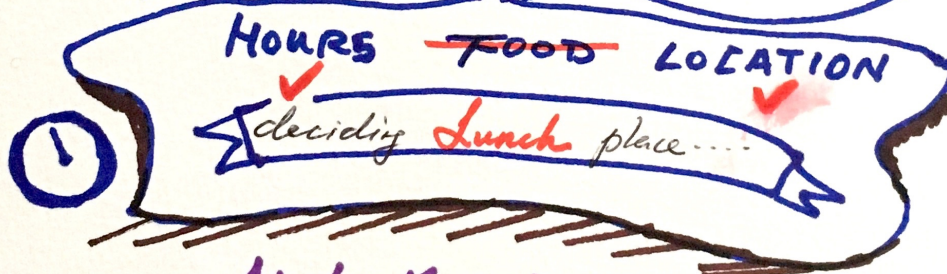 HOURS FOOD LOCATION
deciding Lunch place....